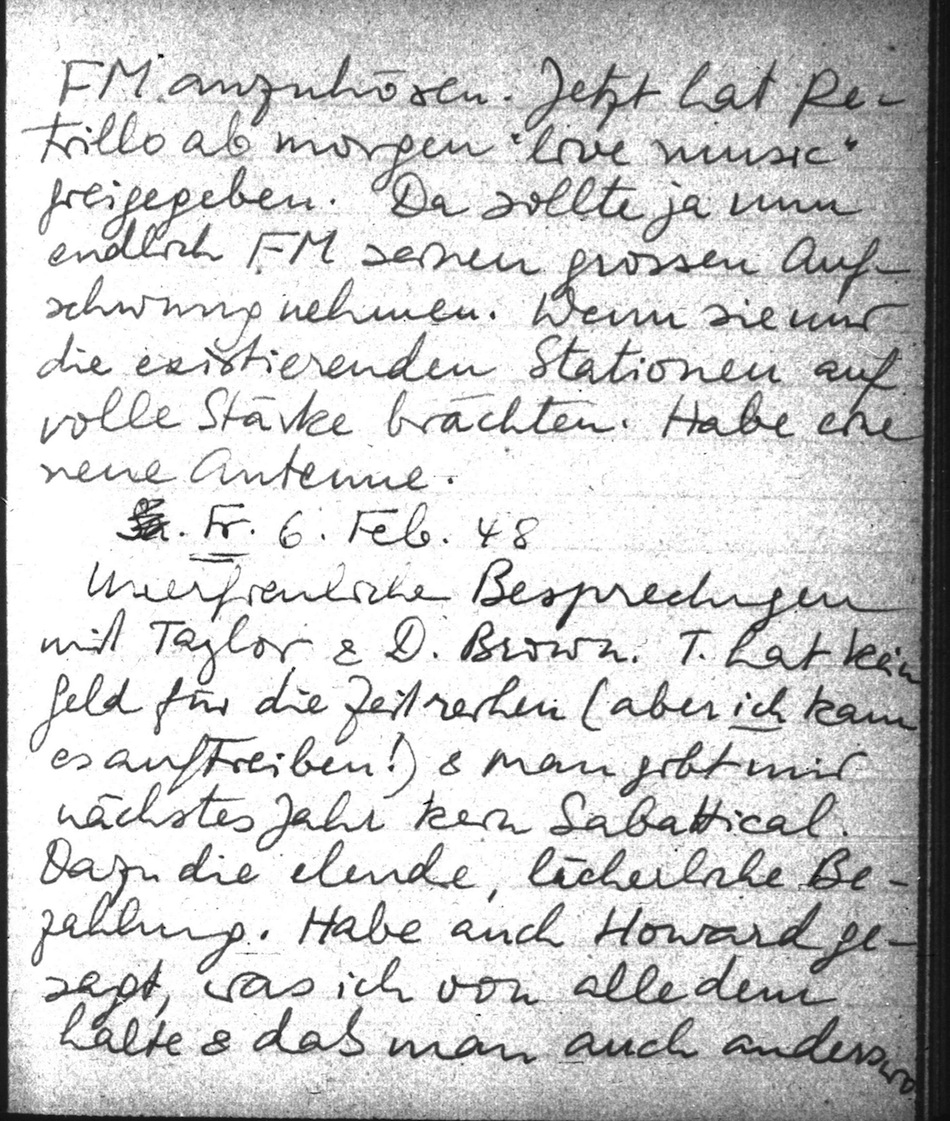 FM anzuhören. Jetzt hat Pe-
trillo ab morgen "live music"
freigegeben. Da sollte ja nun
endlich FM seinen grossen Auf-
schwung nehmen. Wenn sie nur
die existierenden Stationen auf
volle Stärke brächten. Habe eine
neue Antenne.
Fr. 6. Feb. 48
Unerfreuliche Besprechungen
mit Taylor & D. Brown. T. hat kein
Geld für die Zeitreihen (aber ich kann
es auftreiben!) & man gibt mir
nächstes Jahr kein Sabattical.
Dazu die elende, lächerliche Be-
zahlung. Habe auch Howard ge-
sagt, was ich von alledem
halte & daß man auch anderswo